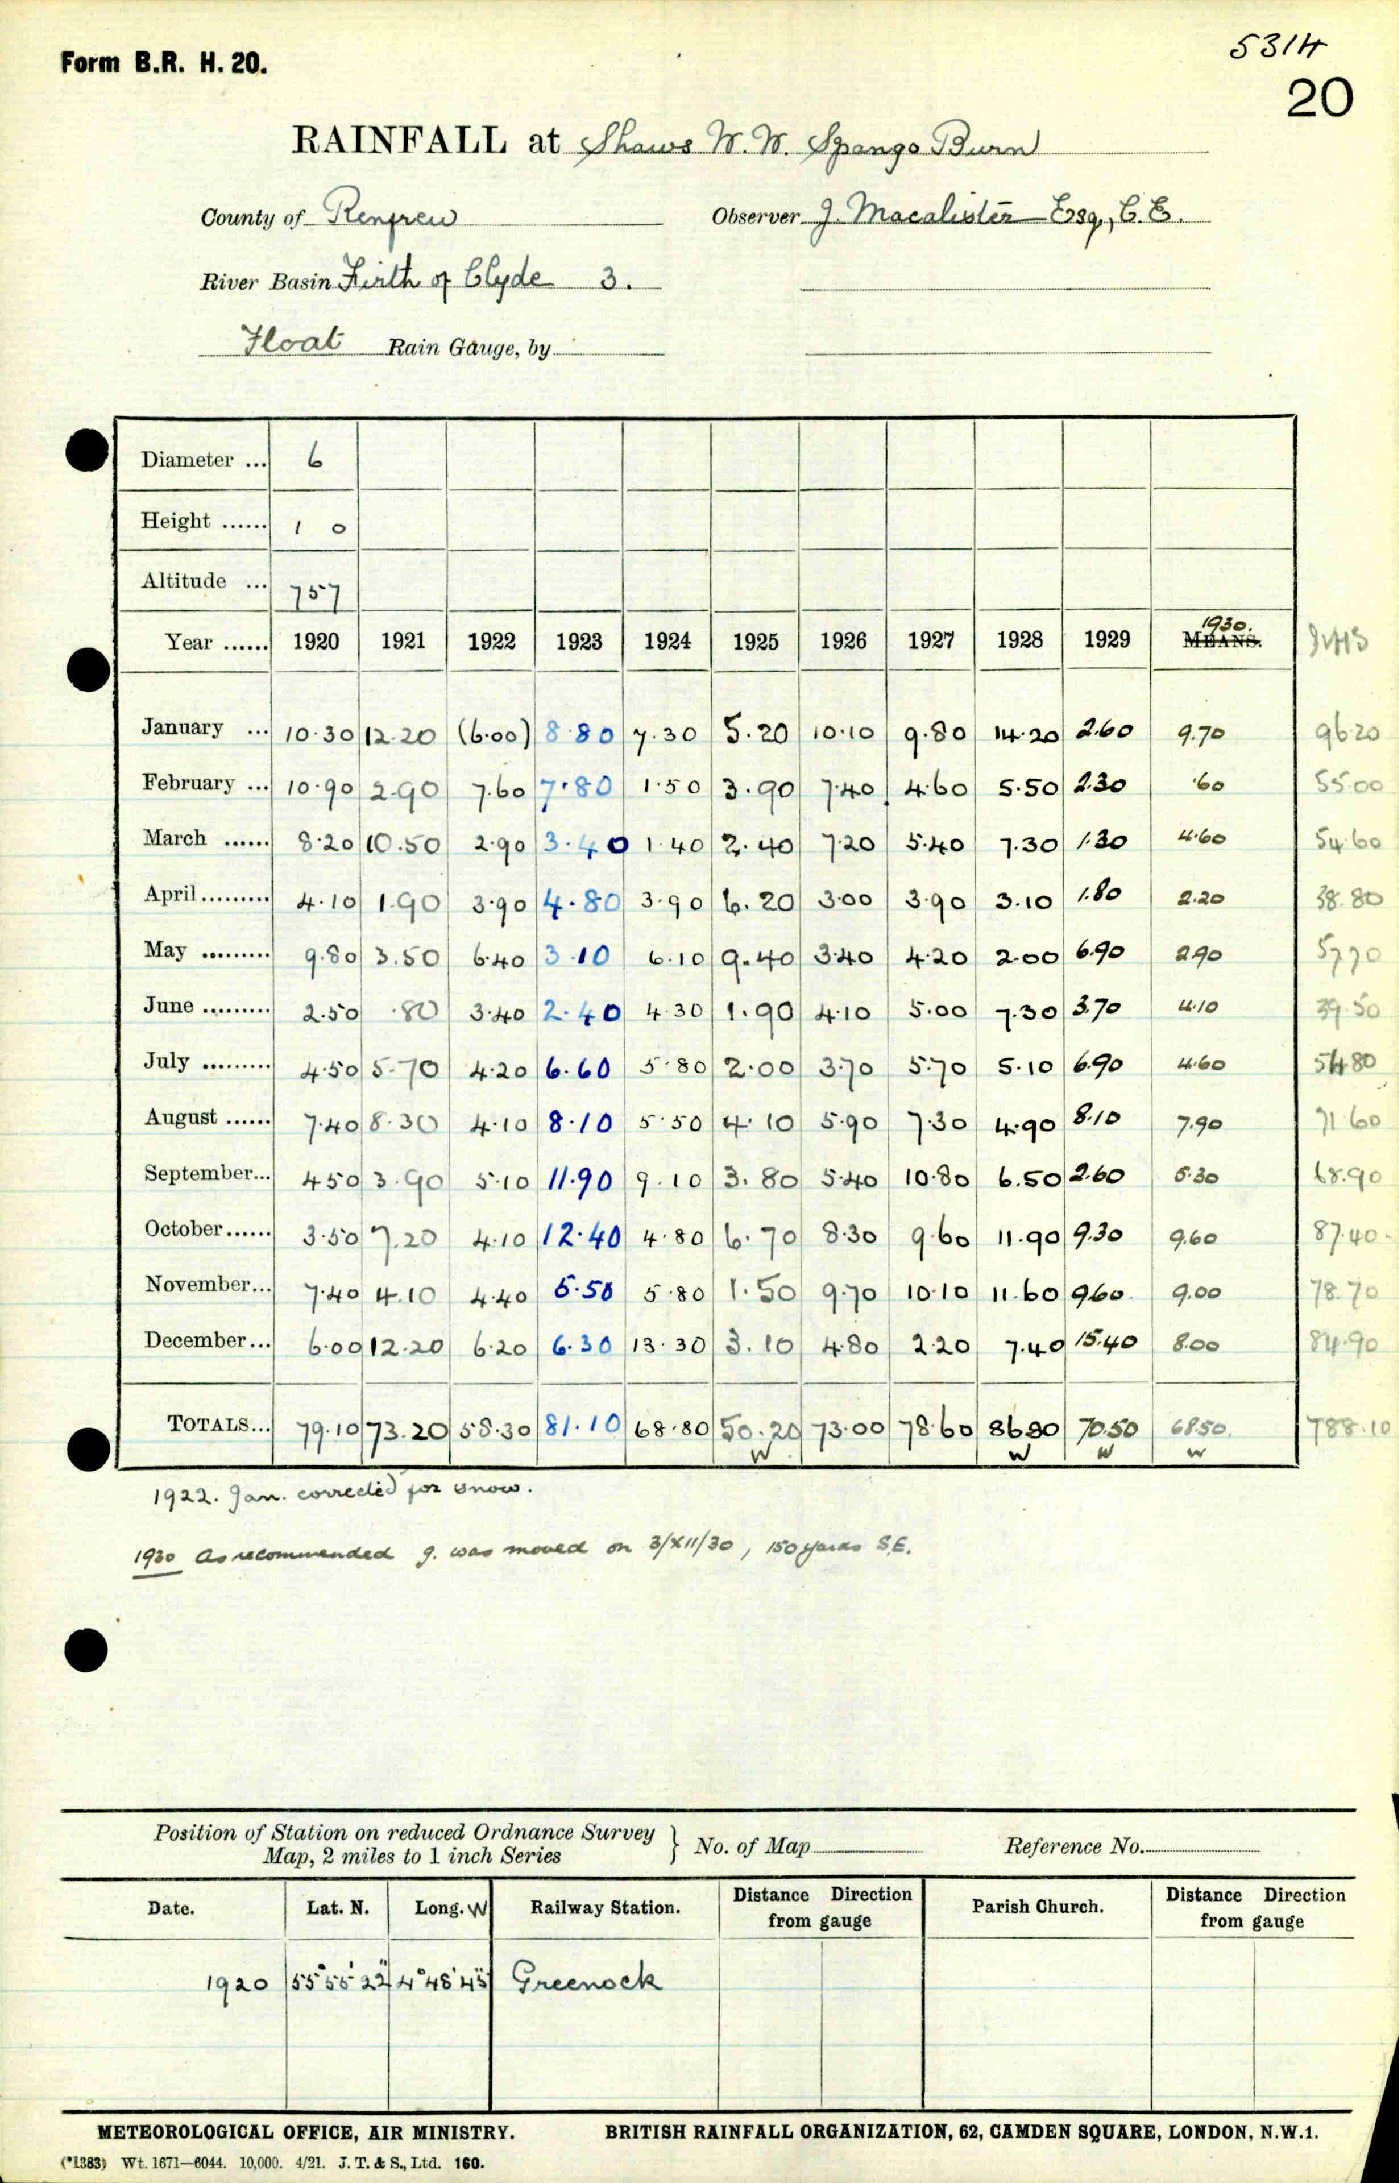 5314
Form B.R. H. 20.
20
RAINFALL at Shaws W.W. Spango Burn
County of Renfrew Observer J. Macalister Esq, C.E.
River Basin Firth of Clyde 3.
Float Rain Gauge, by
Diameter ... 6
Height ...... 1 0
Altitude ... 757
Year ...... 1920 1921 1922 1923 1924 1925 1926 1927 1928 1929 1930. MEANS.
January ... 10.30 12.20 (6.00) 8.80 7.30 5.20 10.10 9.80 14.20 2.60 9.70 96.20
February ... 10.90 2.90 7.60 7.80 1.50 3.90 7.40 4.60 5.50 2.30 .60 55.00
March ...... 8.20 10.50 2.90 3.40 1.40 2.40 7.20 5.40 7.30 1.30 4.60 54.60
April ......... 4.10 1.90 3.90 4.80 3.90 6.20 3.00 3.90 3.10 1.80 2.20 38.80
May ......... 9.80 3.50 6.40 3.10 6.10 9.40 3.40 4.20 2.00 6.90 2.90 57.70
June ......... 2.50 .80 3.40 2.40 4.30 1.90 4.10 5.00 7.30 3.70 4.10 39.50
July ......... 4.50 5.70 4.20 6.60 5.80 2.00 3.70 5.70 5.10 6.90 4.60 54.80
August ...... 7.40 8.30 4.10 8.10 5.50 4.10 5.90 7.30 4.90 8.10 7.90 71.60
September... 4.50 3.90 5.10 11.90 9.10 3.80 5.40 10.80 6.50 2.60 5.30 68.90
October...... 3.50 7.20 4.10 12.40 4.80 6.70 8.30 9.60 11.90 9.30 9.60 87.40
November... 7.40 4.10 4.40 5.50 5.80 1.50 9.70 10.10 11.60 9.60 9.00 78.70
December... 6.00 12.20 6.20 6.30 13.30 3.10 4.80 2.20 7.40 15.40 8.00 84.90
TOTALS... 79.10 73.20 58.30 81.10 68.80 50.20 73.00 78.60 86.80 70.50 68.50 788.10
W W W W
1922. Jan. corrected for snow.
1930 As recommended g. was moved on 3/XII/30, 150 yards S.E.
Position of Station on reduced Ordnance Survey Map, 2 miles to 1 inch Series } No. of Map Reference No.
Date. Lat. N. Long. W Railway Station. Distance Direction from gauge Parish Church. Distance Direction from gauge
1920 55°55'22" 4°48'45" Greenock
METEOROLOGICAL OFFICE, AIR MINISTRY. BRITISH RAINFALL ORGANIZATION, 62, CAMDEN SQUARE, LONDON, N.W.1.
(*1383) Wt. 1671—6044. 10,000. 4/21. J. T. & S., Ltd. 160.